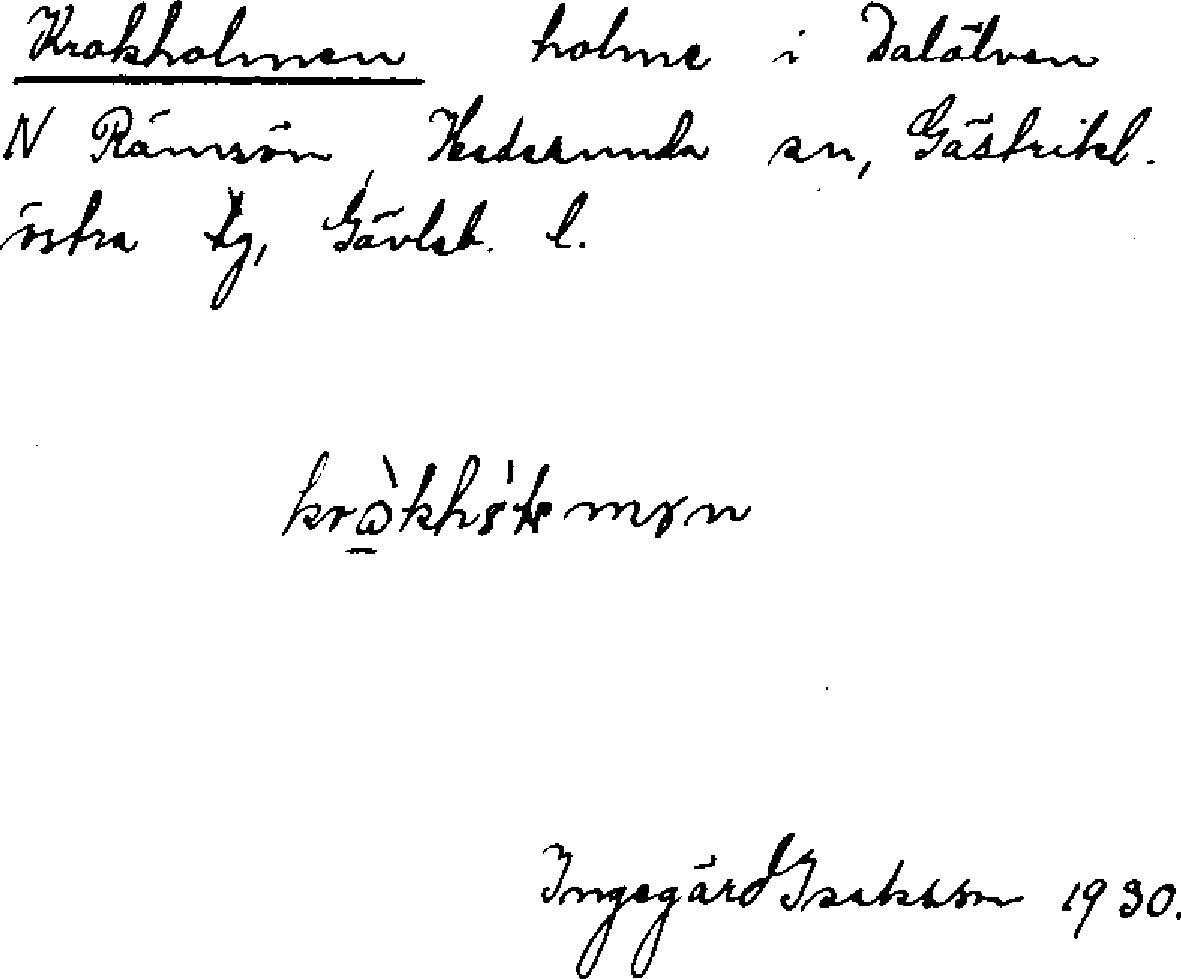 Krokholmen holme i Dalälven
N Rämsön, Hedesunda sn, Gästrikl.
östra tg, Gävleb. l.
Ingegärd Isaksson 1930.